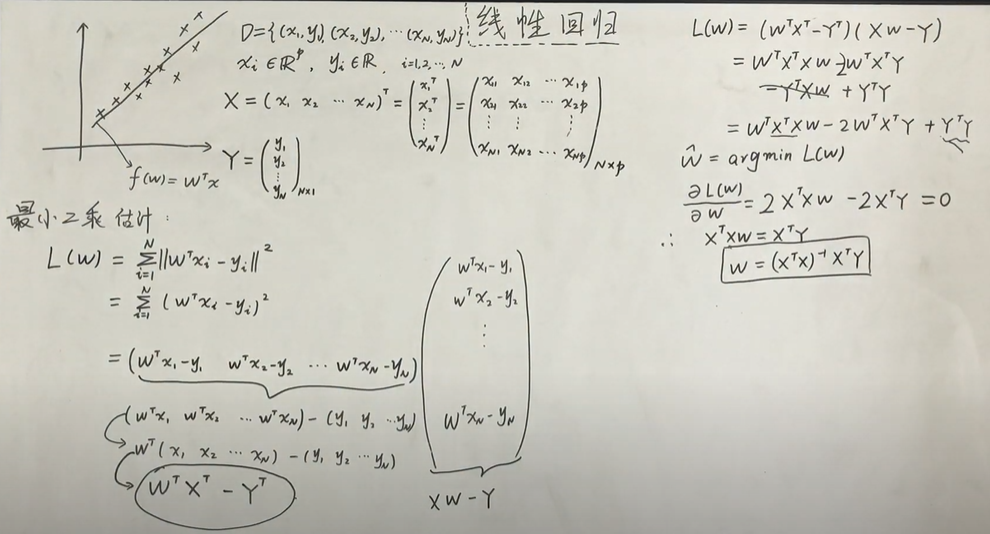 线性回归
D={(x₁,y₁),(x₂,y₂),⋯(x_N,y_N)}
xᵢ∈ℝᵖ, yᵢ∈ℝ, i=1,2,⋯,N
X=(x₁ x₂ ⋯ x_N)ᵀ=(x₁ᵀ x₂ᵀ ⋮ x_Nᵀ)=(x₁₁ x₁₂ ⋯ x₁ₚ x₂₁ x₂₂ ⋯ x₂ₚ ⋮ ⋮ ⋮ x_N1 x_N2 ⋯ x_Np)_N×p
Y=(y₁ y₂ ⋮ y_N)_N×1
f(w)=wᵀx
最小二乘估计:
L(w)=∑_{i=1}^{N}||wᵀxᵢ-yᵢ||²
=∑_{i=1}^{N}(wᵀxᵢ-yᵢ)²
=(wᵀx₁-y₁ wᵀx₂-y₂ ⋯ wᵀx_N-y_N)
(wᵀx₁ wᵀx₂ ⋯ wᵀx_N)-(y₁ y₂ ⋯y_N)
wᵀ(x₁ x₂ ⋯ x_N)-(y₁ y₂ ⋯y_N)
wᵀXᵀ-Yᵀ
wᵀx₁-y₁
wᵀx₂-y₂
⋮
wᵀx_N-y_N
Xw-Y
L(w)=(wᵀXᵀ-Yᵀ)(Xw-Y)
=wᵀXᵀXw-2wᵀXᵀY
-YᵀXw+YᵀY
=wᵀXᵀXw-2wᵀXᵀY+YᵀY
ŵ=argmin L(w)
∂L(w)/∂w=2XᵀXw-2XᵀY=0
∴ XᵀXw=XᵀY
w=(XᵀX)⁻¹XᵀY